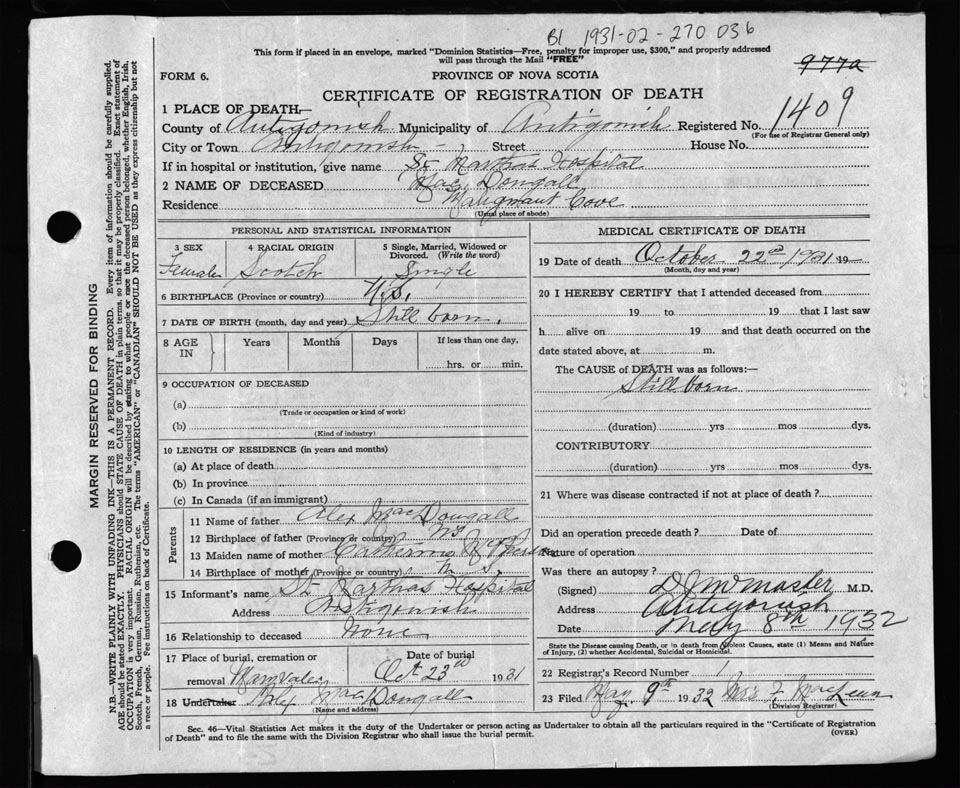 B1 1931-02-270 036
This form if placed in an envelope, marked "Dominion Statistics—Free, penalty for improper use, $300," and properly addressed
will pass through the Mail "FREE"
977a
FORM 6.
PROVINCE OF NOVA SCOTIA
CERTIFICATE OF REGISTRATION OF DEATH
1409
1 PLACE OF DEATH—
County of Antigonish Municipality of Antigonish Registered No.
(For use of Registrar General only)
City or Town Antigonish Street House No.
If in hospital or institution, give name St Marthas Hospital
2 NAME OF DECEASED MacDougall
Residence Malignant Cove
(Usual place of abode)
PERSONAL AND STATISTICAL INFORMATION
3 SEX 4 RACIAL ORIGIN 5 Single, Married, Widowed or Divorced. (Write the word)
Female Scotch Single
6 BIRTHPLACE (Province or country) N.S.
7 DATE OF BIRTH (month, day and year) Still born.
8 AGE IN Years Months Days If less than one day,
hrs. or min.
9 OCCUPATION OF DECEASED
(a)
(Trade or occupation or kind of work)
(b)
(Kind of industry)
10 LENGTH OF RESIDENCE (in years and months)
(a) At place of death
(b) In province
(c) In Canada (if an immigrant)
Parents
11 Name of father Alex MacDougall
12 Birthplace of father (Province or country) N S
13 Maiden name of mother Catherine
14 Birthplace of mother (Province or country) N. S.
15 Informant's name St Marthas Hospital
Address Antigonish
16 Relationship to deceased None
17 Place of burial, cremation or Date of burial
removal Oct 23rd 1931
18 Undertaker Alex MacDougall
(Name and address)
MEDICAL CERTIFICATE OF DEATH
19 Date of death October 22nd 1931 19
(Month, day and year)
20 I HEREBY CERTIFY that I attended deceased from
19 to 19 that I last saw
h alive on 19 and that death occurred on the
date stated above, at m.
The CAUSE of DEATH was as follows:—
Still born
(duration) yrs mos dys.
CONTRIBUTORY
(duration) yrs mos dys.
21 Where was disease contracted if not at place of death?
Did an operation precede death? Date of
Nature of operation
Was there an autopsy?
(Signed) D J McMaster M.D.
Address Antigonish
Date May 8th 1932
State the Disease causing Death, or in death from Violent Causes, state (1) Means and Nature
of Injury, (2) whether Accidental, Suicidal or Homicidal.
22 Registrar's Record No.
23 Filed May 9th 1932
(Division Registrar)
Sec. 46—Vital Statistics Act makes it the duty of the Undertaker or person acting as Undertaker to obtain all the particulars required in the "Certificate of Registration
of Death" and to file the same with the Division Registrar who shall issue the burial permit.
(OVER)
MARGIN RESERVED FOR BINDING
N.B.—WRITE PLAINLY WITH UNFADING INK—THIS IS A PERMANENT RECORD. Every item of information should be carefully supplied.
AGE should be stated EXACTLY. PHYSICIANS should STATE CAUSE OF DEATH in plain terms, so that it may be properly classified. Exact statement of
OCCUPATION is very important. RACIAL ORIGIN will be described by stating to what people or race the deceased person belonged, whether English, Irish,
Scotch, French, German, Russian, Ruthenian, etc. The terms "AMERICAN" or "CANADIAN" SHOULD NOT BE USED as they express citizenship but not
a race or people. See instructions on back of Certificate.